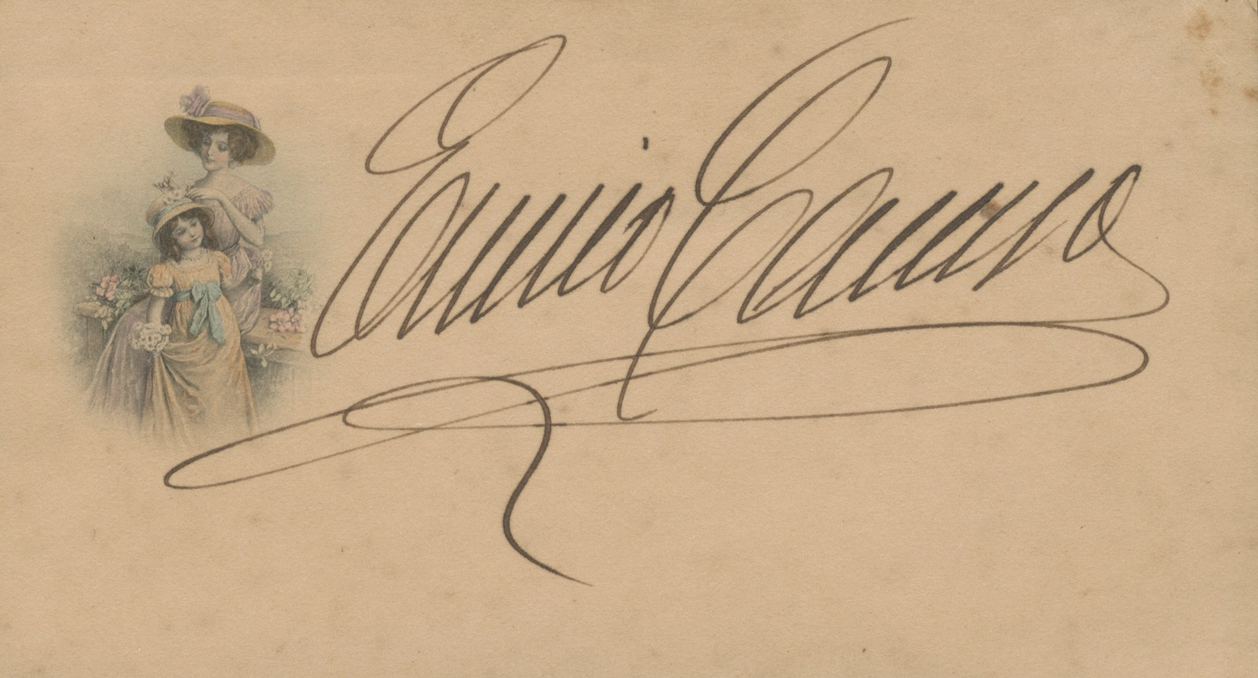 Enrico Caruso